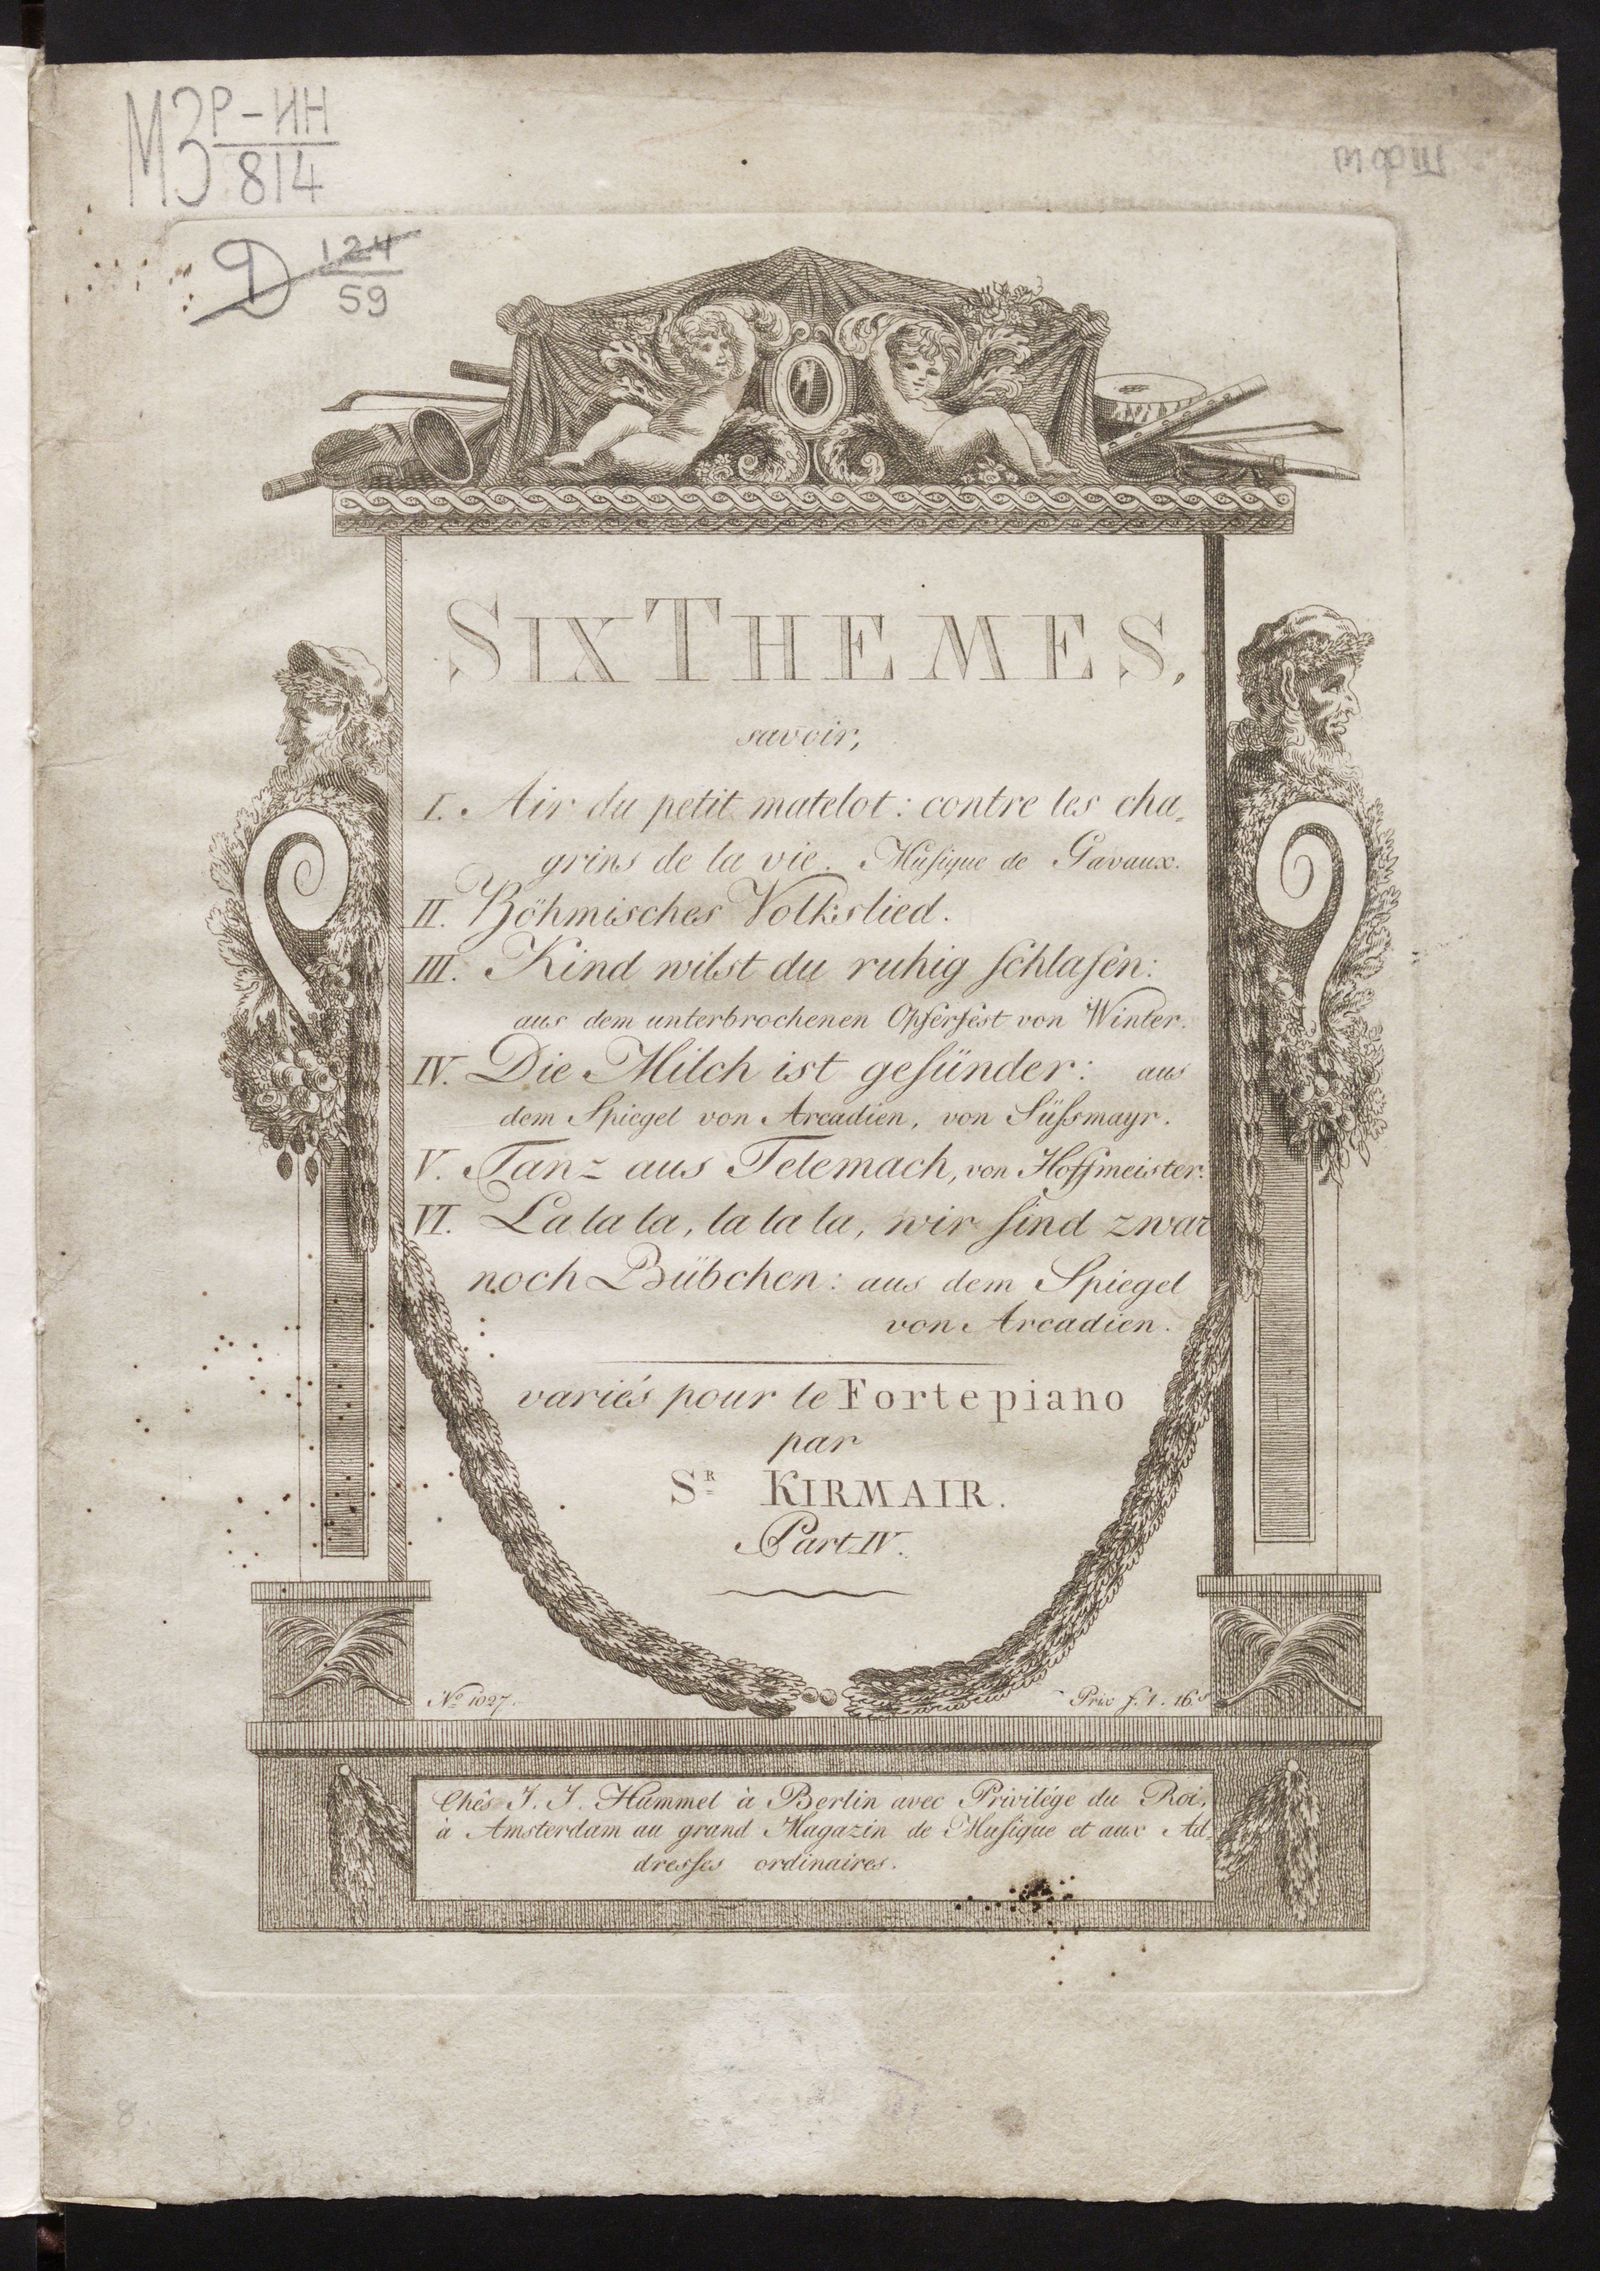 МЗ Р-ИН
814
тфш
Д 124
59
SIX THEMES,
savoir,
I. Air du petit matelot: contre les cha=
grins de la vie. Musique de Gavaux.
II. Böhmisches Volkslied.
III. Kind wilst du ruhig schlafen:
aus dem unterbrochenen Opferfest von Winter.
IV. Die Milch ist gesünder: aus
dem Spiegel von Arcadien, von Süssmayr.
V. Tanz aus Telemach, von Hoffmeister.
VI. La la la, la la la, wir sind zwar
noch Bübchen: aus dem Spiegel
von Arcadien.
variés pour le Fortepiano
par
SR KIRMAIR.
Part IV.
No 1027. Prix f. 1. 16 s
Chés J. J. Hummel à Berlin avec Privilége du Roi,
à Amsterdam au grand Magazin de Musique et aux Ad=
dresses ordinaires.
8